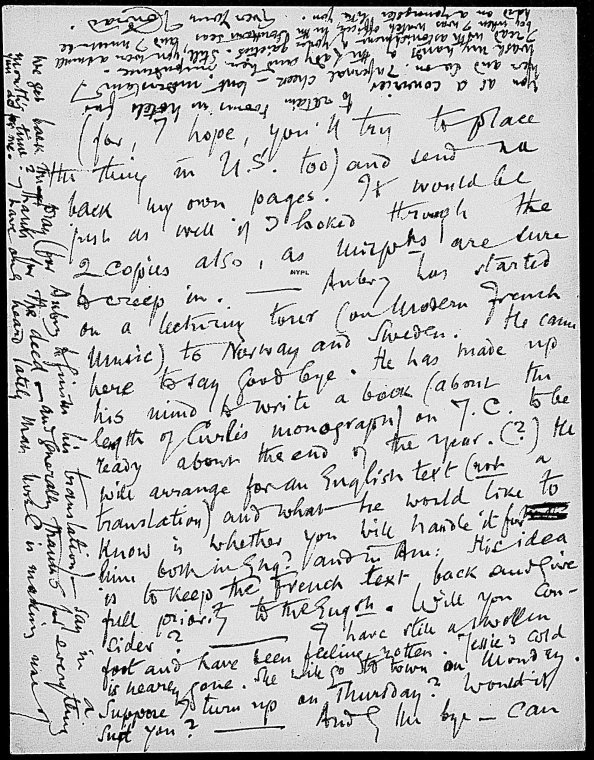 (for, I hope, you'll try to place
the thing in U.S. too) and send me
back my own pages. It would be
just as well if I looked through the
2 copies also, as misprints are sure
to creep in. — Aubry has started
NYPL
on a lecturing tour (on Modern French
Music) to Norway and Sweden. He came
here to say good bye. He has made up
his mind to write a book (about the
length of Curle's monograph) on J.C. to be
ready about the end of the year. (?) He
will arrange for an English text (not a
translation) and what he would like to
know is whether you will handle it for
him both in Eng? and in Am: His idea
is to keep the French text back and give
full priority to the English. Will you con-
sider? — I have still a swollen
foot and have been feeling rotten. Jessie's cold
is nearly gone. She will go to town on Monday.
Suppose I turn up on Thursday? Would it
suit you? — And by the bye — can
you at a
to retain rooms in hotels for
her and
wash my hands of the
I read with
bad when I was
held on a
like you.
Still,
and I must
Ever Yours
Conrad
We get back the play (for Aubry to finish his translation) — say in a
month's time? Thanks for the deed — and generally thanks for everything
you do for me. I have only heard lately that
is making